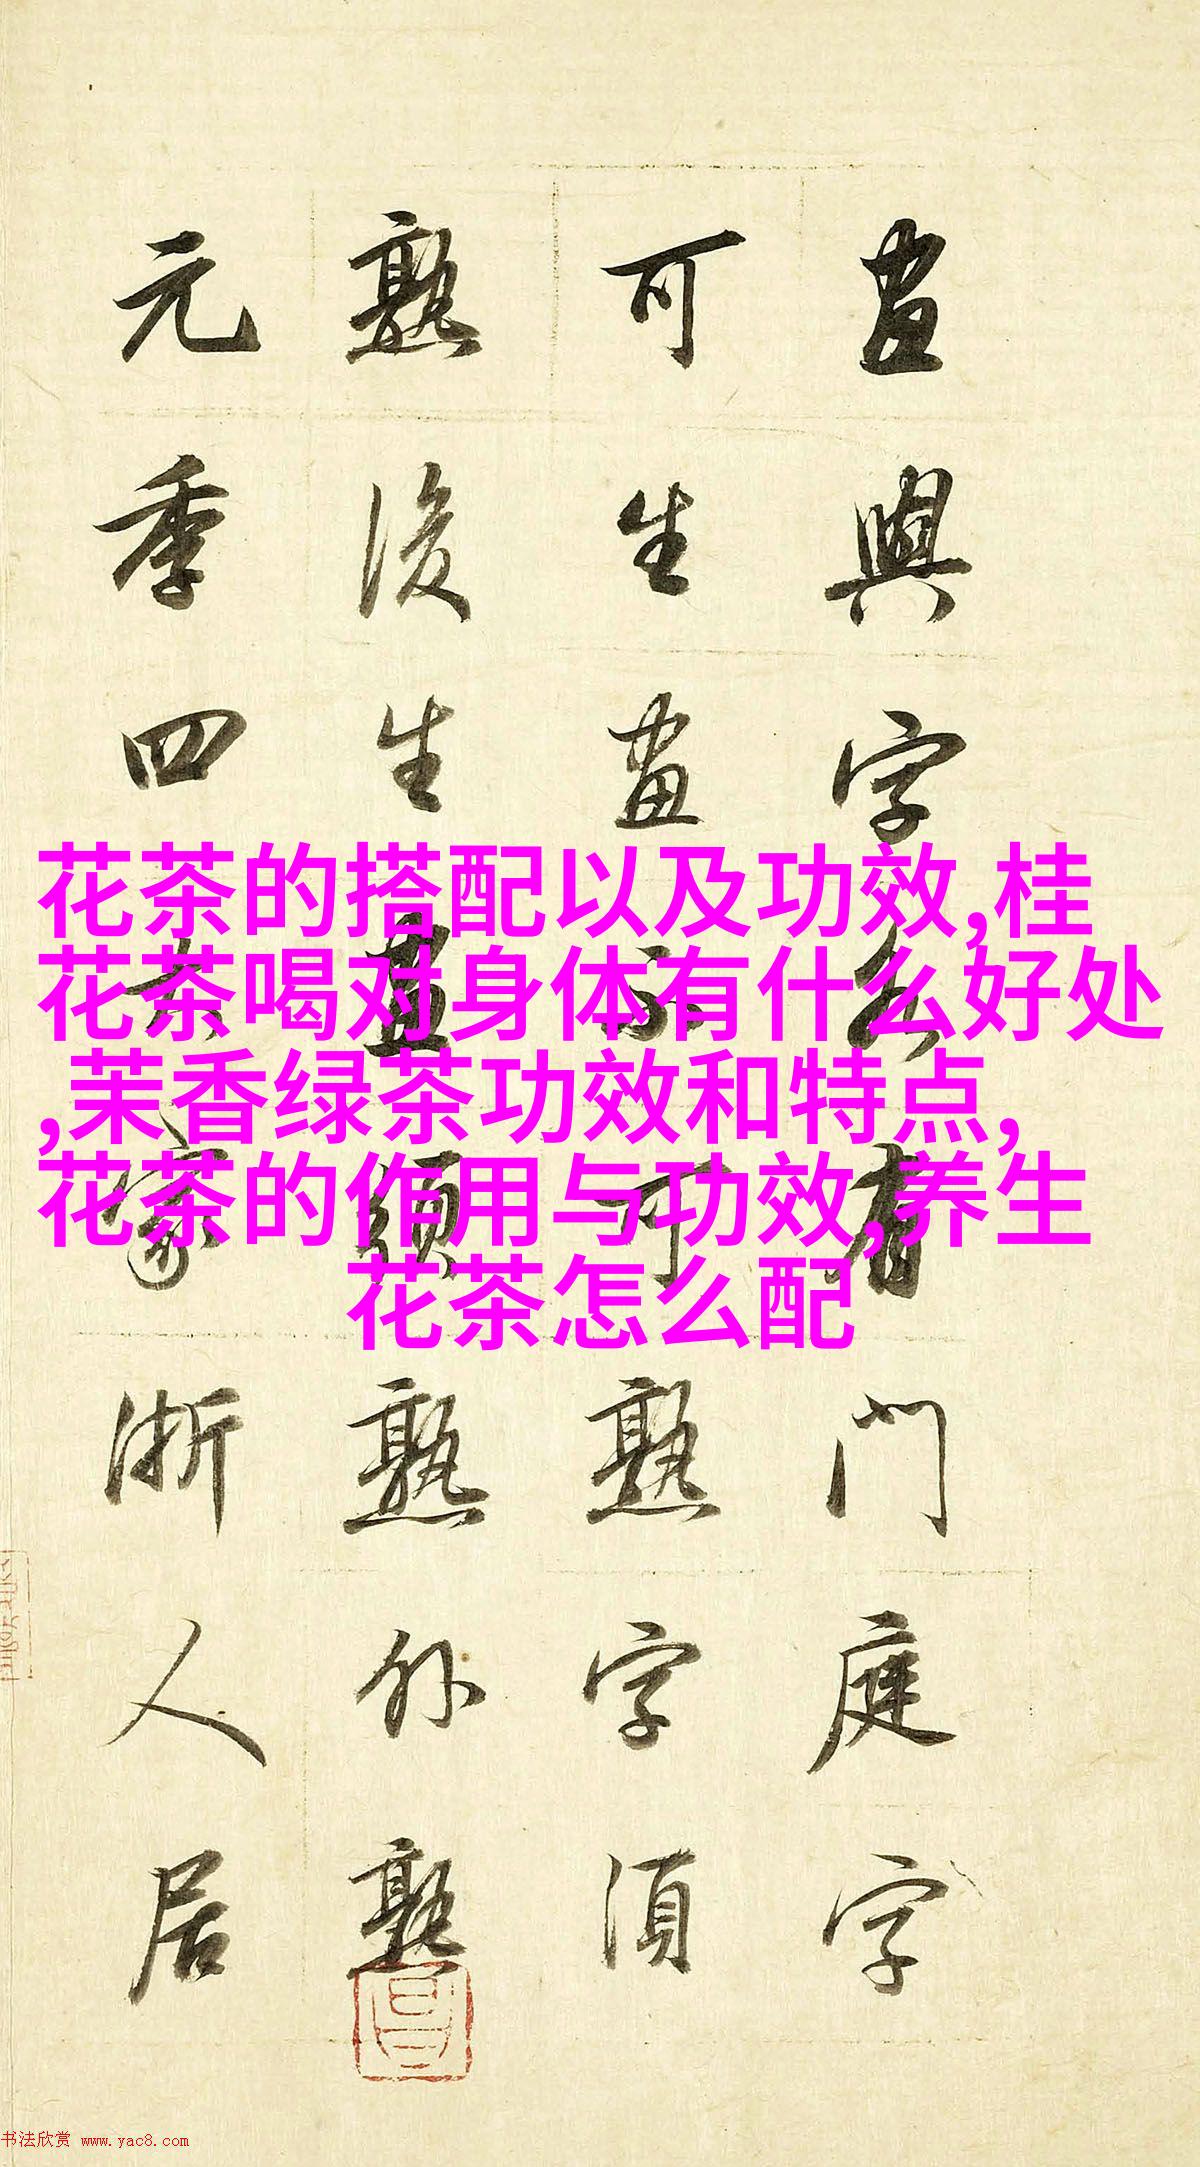 畫與字各有門庭字
可生畫不可熟字須
熟後生畫須熟外熟
元季四大家浙人居
花茶的搭配以及功效,桂
花茶喝对身体有什么好处
,茉香绿茶功效和特点,
花茶的作用与功效,养生
花茶怎么配
书法欣赏 www.yac8.com